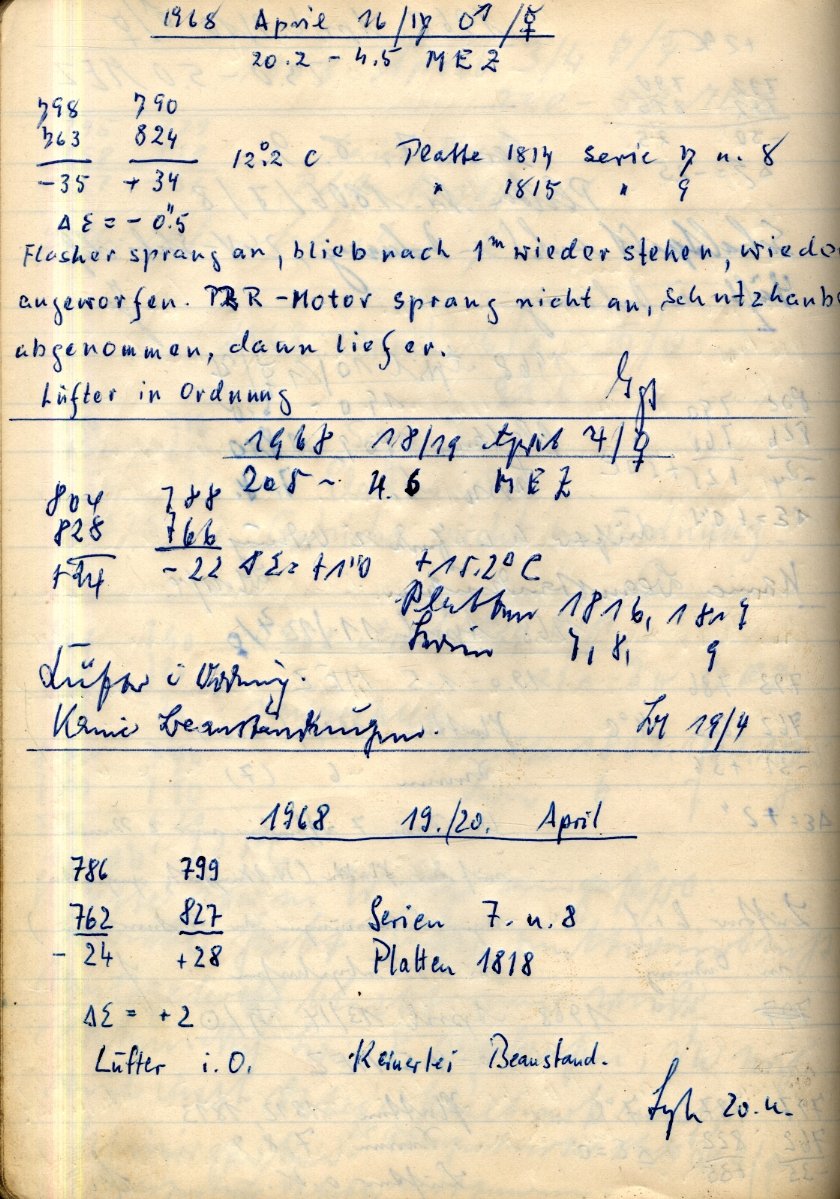 1968 April 16/17 ♂/☿
20.2 - 4.5 MEZ
798 790
763 824
-35 + 34
12.°2 C Platte 1814 Serie 7 u. 8
" 1815 " 9
ΔΣ = - 0."5
Flasher sprang an, blieb nach 1m wieder stehen, wieder
angeworfen. R-Motor sprang nicht an, Schutzhaube
abgenommen, dann lief er.
Lüfter in Ordnung
1968 18/19 April 4/♀
20.5 - 4.6 MEZ
804 788
828 766
+24 - 22 ΔΣ = +1."0 +15.2° C
Platten 1816, 1817
Serien 7, 8, 9
Lüfter i Ordnung.
Keine Beanständungen. 19/4
1968 19./20. April
786 799
762 827
- 24 +28
Serien 7. u. 8
Platten 1818
ΔΣ = +2
Lüfter i.O. Keinerlei Beanstand.
20.4.